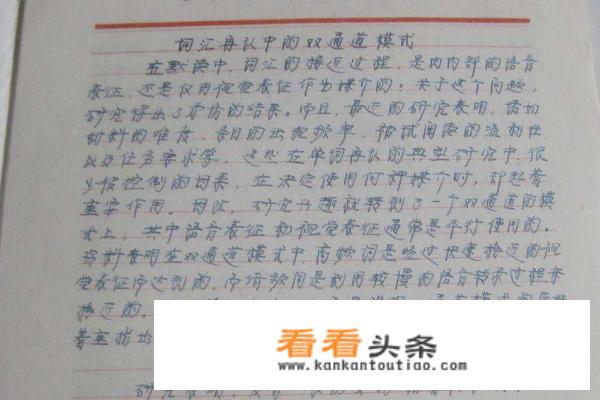 词汇再认中的双通道模式
在默读中,词汇的接近过程,是由内部的语音
表征,还是仅由视觉表征作为媒介的?关于这个问题,
研究得出了矛盾的结果。而且,最近的研究表明,诸如
材料的难度、条目的出现频率、被试阅读的流利性
以及任务要求等,这些在单词再认的典型研究中,很
少被控制的因素,在决定使用何种媒介时,却起着
重要作用。因此,研究兴趣就转到了一个双通道的模
式上,其中语音表征和视觉表征通常是平行使用的。
资料表明在双通道模式中,高频词是经过快速接近的视
觉表征而达到的,而低频词是利用较慢的语音转录过程来
接近的。
着重指出
研究表明,
看看头条
www.kankantoutiao.com